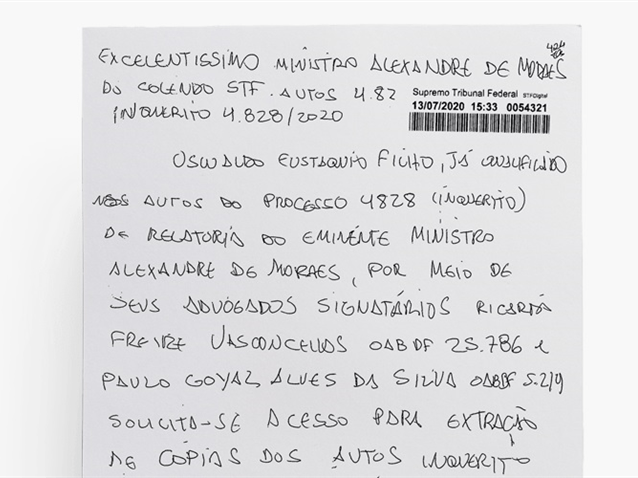 EXCELENTISSIMO MINISTRO ALEXANDRE DE MORAES
DO COLENDO STF. AUTOS 4.82
INQUERITO 4.828/2020
Supremo Tribunal Federal STFDigital
13/07/2020 15:33 0054321
OSWALDO EUSTAQUIO FILHO, JÁ QUALIFICADO
NOS AUTOS DO PROCESSO 4828 (INQUERITO)
DE RELATORIA DO EMINENTE MINISTRO
ALEXANDRE DE MORAES, POR MEIO DE
SEUS ADVOGADOS SIGNATÁRIOS RICARDO
FREIRE VASCONCELLOS OAB DF 25.786 e
PAULO GOYAZ ALVES DA SILVA OAB DF 5.214
SOLICITA-SE ACESSO PARA EXTRAÇÃO
DE CÓPIAS DOS AUTOS INQUERITO